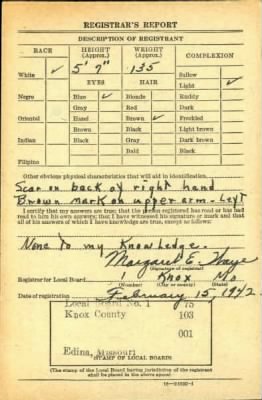 REGISTRAR'S REPORT
DESCRIPTION OF REGISTRANT
RACE HEIGHT (Approx.) WEIGHT (Approx.) COMPLEXION
5' 7" 135 Sallow
White ✓ Light ✓
EYES HAIR Ruddy
Negro Blue ✓ Blonde Dark
Gray Red Freckled
Oriental Hazel Brown ✓ Light brown
Brown Black Dark brown
Indian Black Gray Black
Bald
Filipino
Other obvious physical characteristics that will aid in identification.
Scar on back of right hand
Brown mark on upper arm - Left
I certify that my answers are true; that the person registered has read or has had
read to him his own answers; that I have witnessed his signature or mark and that
all of his answers of which I have knowledge are true, except as follows:
None to my Knowledge.
Margaret E.
(Signature of registrar)
Registrar for Local Board 1 Knox Mo
(Number) (City or county) (State)
Date of registration February 15, 1942
Local Board No. 1 75
Knox County 103
001
Edina, Missouri
(STAMP OF LOCAL BOARD)
(The stamp of the Local Board having jurisdiction of the registrant
shall be placed in the above space.)